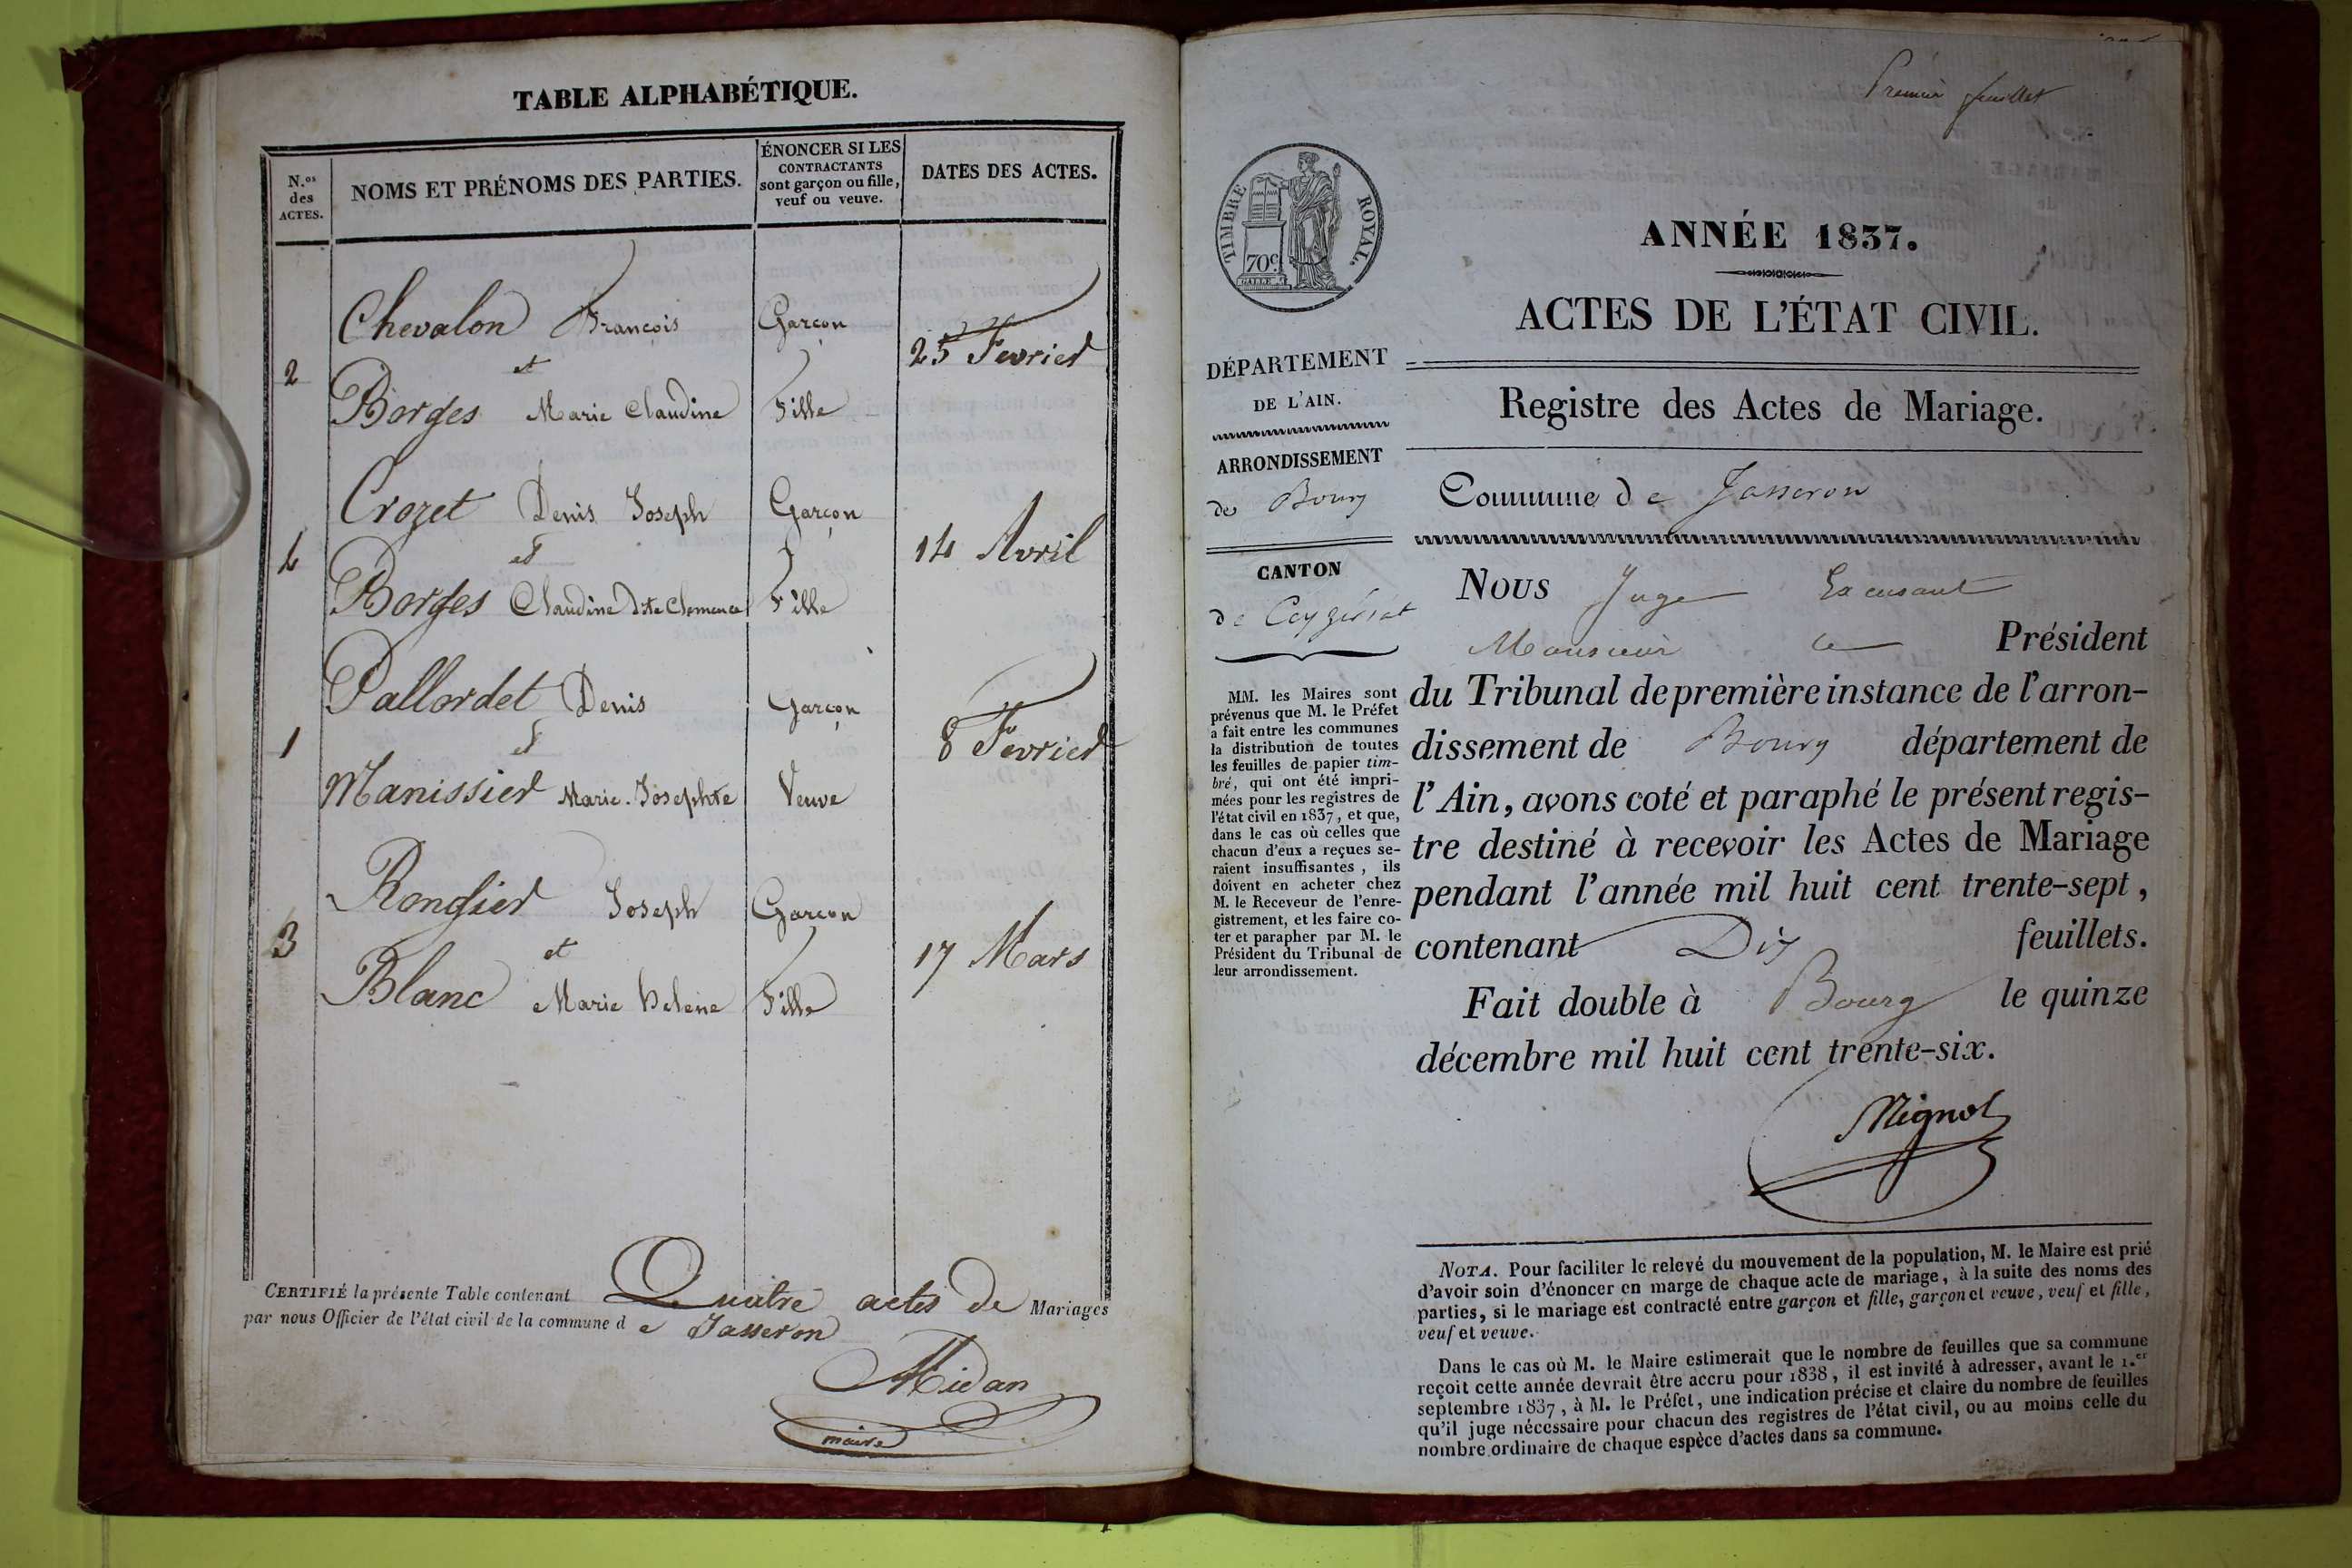 TABLE ALPHABÉTIQUE.
N.os des ACTES.
NOMS ET PRÉNOMS DES PARTIES.
ÉNONCER SI LES
CONTRACTANTS
sont garçon ou fille,
veuf ou veuve.
DATES DES ACTES.
Chevalon François Garçon
2 et 25 Fevrier
Borges Marie Claudine Fille
Crozet Denis Joseph Garçon
4 et 14 Avril
Borges Claudine dite Clemence Fille
Pallordet Denis Garçon
1 et 8 Fevrier
Manissier Marie-Josephte Veuve
Rongier Joseph Garcon
3 et 17 Mars
Blanc Marie helene Fille
CERTIFIÉ la présente Table contenant Quatre actes de Mariages
par nous Officier de l'état civil de la commune d e Jasseron
Midan
maire
Premier feuillet
TIMBRE ROYAL.
70c.
GALLE
ANNÉE 1837.
ACTES DE L'ÉTAT CIVIL.
DÉPARTEMENT
DE L'AIN.
ARRONDISSEMENT
de Bourg
CANTON
de Ceyzériat
MM. les Maires sont
prévenus que M. le Préfet
a fait entre les communes
la distribution de toutes
les feuilles de papier tim-
bré, qui ont été impri-
mées pour les registres de
l'état civil en 1837, et que,
dans le cas où celles que
chacun d'eux a reçues se-
raient insuffisantes, ils
doivent en acheter chez
M. le Receveur de l'enre-
gistrement, et les faire co-
ter et parapher par M. le
Président du Tribunal de
leur arrondissement.
Registre des Actes de Mariage.
Commune de Jasseron
Nous Juge
Monsieur le Président
du Tribunal de première instance de l'arron-
dissement de Bourg département de
l'Ain, avons coté et paraphé le présent regis-
tre destiné à recevoir les Actes de Mariage
pendant l'année mil huit cent trente-sept,
contenant Dix feuillets.
Fait double à Bourg le quinze
décembre mil huit cent trente-six.
Mignot
NOTA. Pour faciliter le relevé du mouvement de la population, M. le Maire est prié
d'avoir soin d'énoncer en marge de chaque acte de mariage, à la suite des noms des
parties, si le mariage est contracté entre garçon et fille, garçon et veuve, veuf et fille,
veuf et veuve.
Dans le cas où M. le Maire estimerait que le nombre de feuilles que sa commune
reçoit cette année devrait être accru pour 1838, il est invité à adresser, avant le 1.er
septembre 1837, à M. le Préfet, une indication précise et claire du nombre de feuilles
qu'il juge nécessaire pour chacun des registres de l'état civil, ou au moins celle du
nombre ordinaire de chaque espèce d'actes dans sa commune.